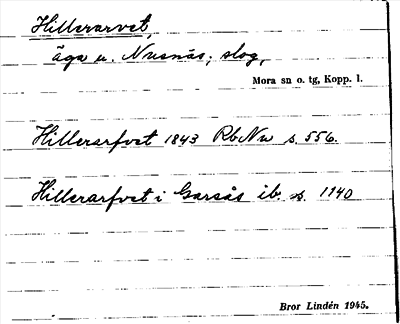 Hillerarvet,
äga u. Nusnäs, skog,
Mora sn o. tg, Kopp. l.
Hillerarfvet 1843 Rb Nu s. 556.
Hillerarfvet i Garsås ib. s. 1140
Bror Lindén 1945.